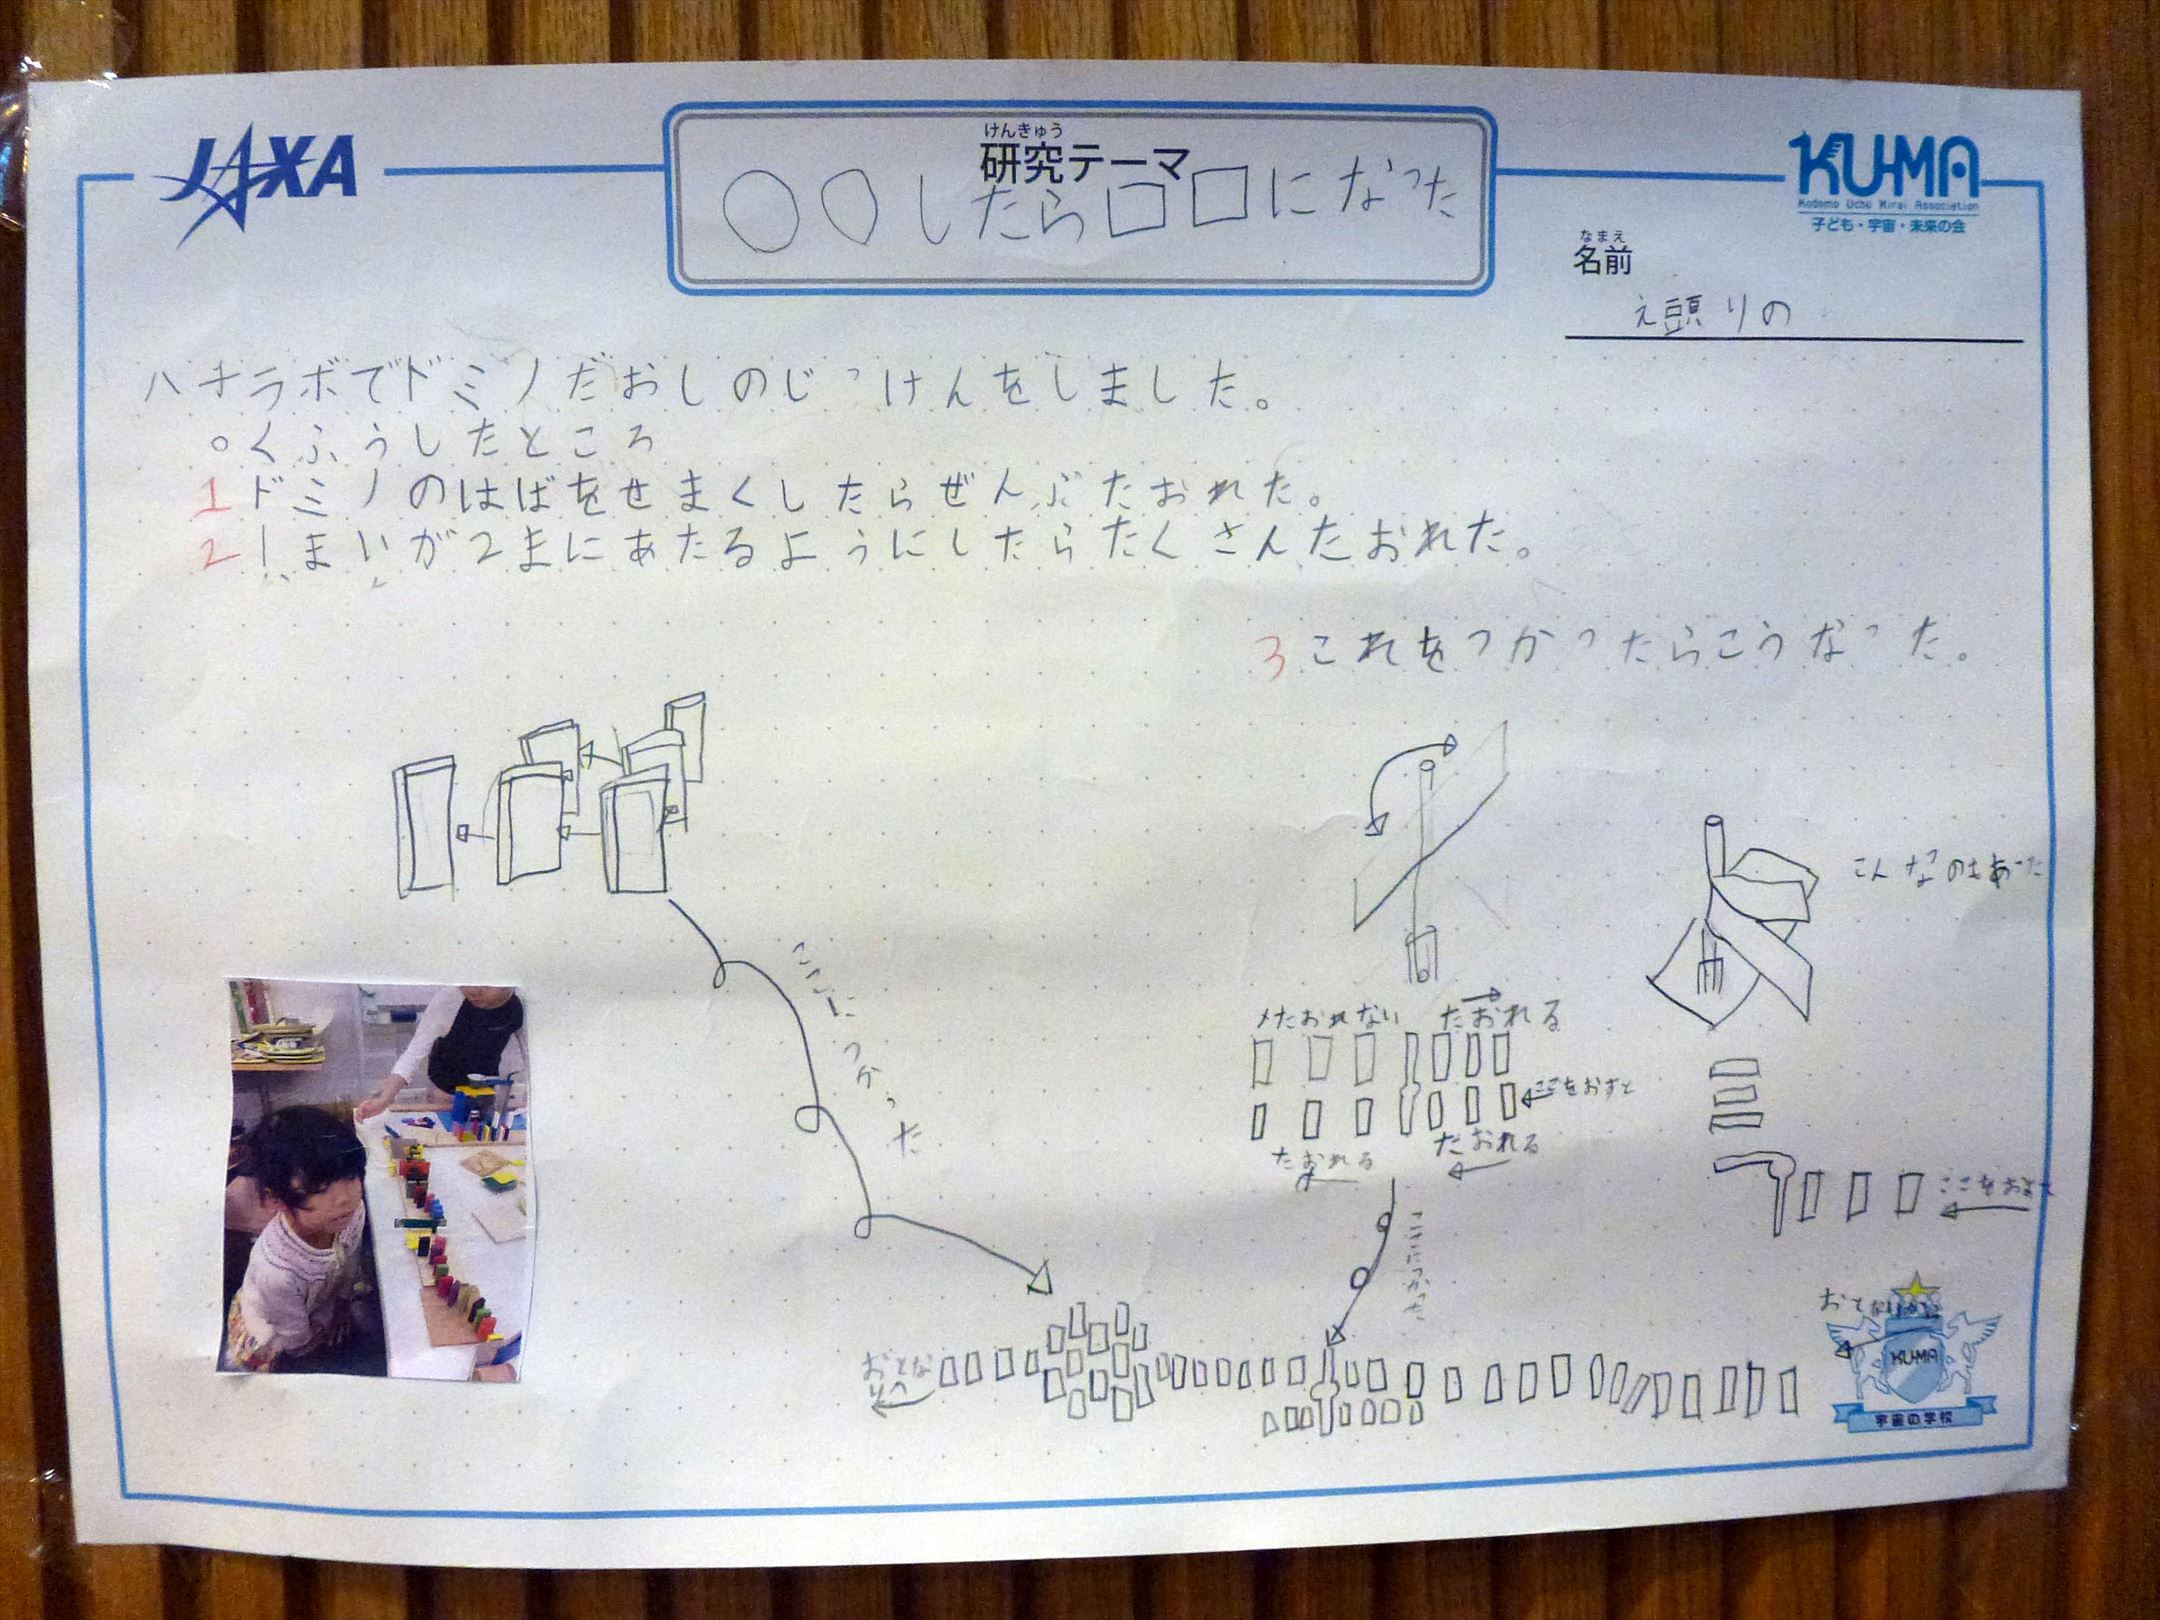 JAXA
けんきゅう
研究テーマ
○○したら□□になった
KU-MA
Kodomo Uchu Mirai Association
子ども・宇宙・未来の会
なまえ
名前
え頭りの
ハチラボでドミノだおしのじっけんをしました。
○くふうしたところ
1 ドミノのはばをせまくしたらぜんぶたおれた。
2 1まいが2まにあたるようにしたらたくさんたおれた。
3 これをつかったらこうなった。
こんなのもあった
ここにつかった
メたおれない
たおれる
ここをおすと
たおれる
たおれる
ここをおすと
ここにつかった
おとな
KU-MA
宇宙の学校